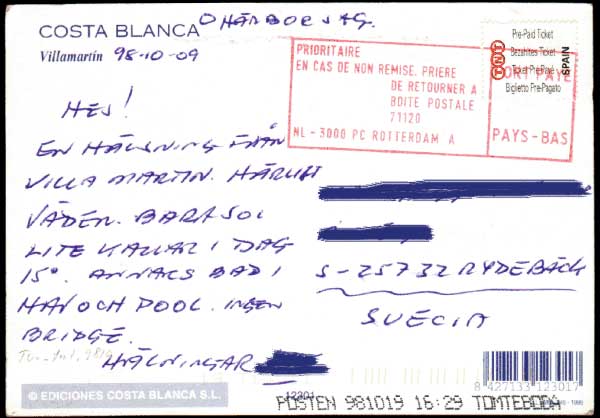 COSTA BLANCA
Villamartín 98-10-09
HEJ!
EN HÄLSNING FRÅN
VILLA MARTIN. HÄRLIGT
VÄDER. BARA SOL
LITE KALLARE I DAG
15°. ANNARS BAD I
HAV OCH POOL. INGEN
BRIDGE.
HÄLSNINGAR
© EDICIONES COSTA BLANCA S.L.
PRIORITAIRE
EN CAS DE NON REMISE, PRIERE
DE RETOURNER A
BOITE POSTALE
71120
NL - 3000 PC ROTTERDAM A
PORT PAYE
PAYS-BAS
TNT
Pre-Paid Ticket
Bezahltes Ticket
Ticket Pre-Payé
Biglietto Pre-Pagato
SPAIN
S-25732 RYDEBÄCK
SUECIA
8 427133 123017
12301
POSTEN 981019 16:29 TOMTEBODA